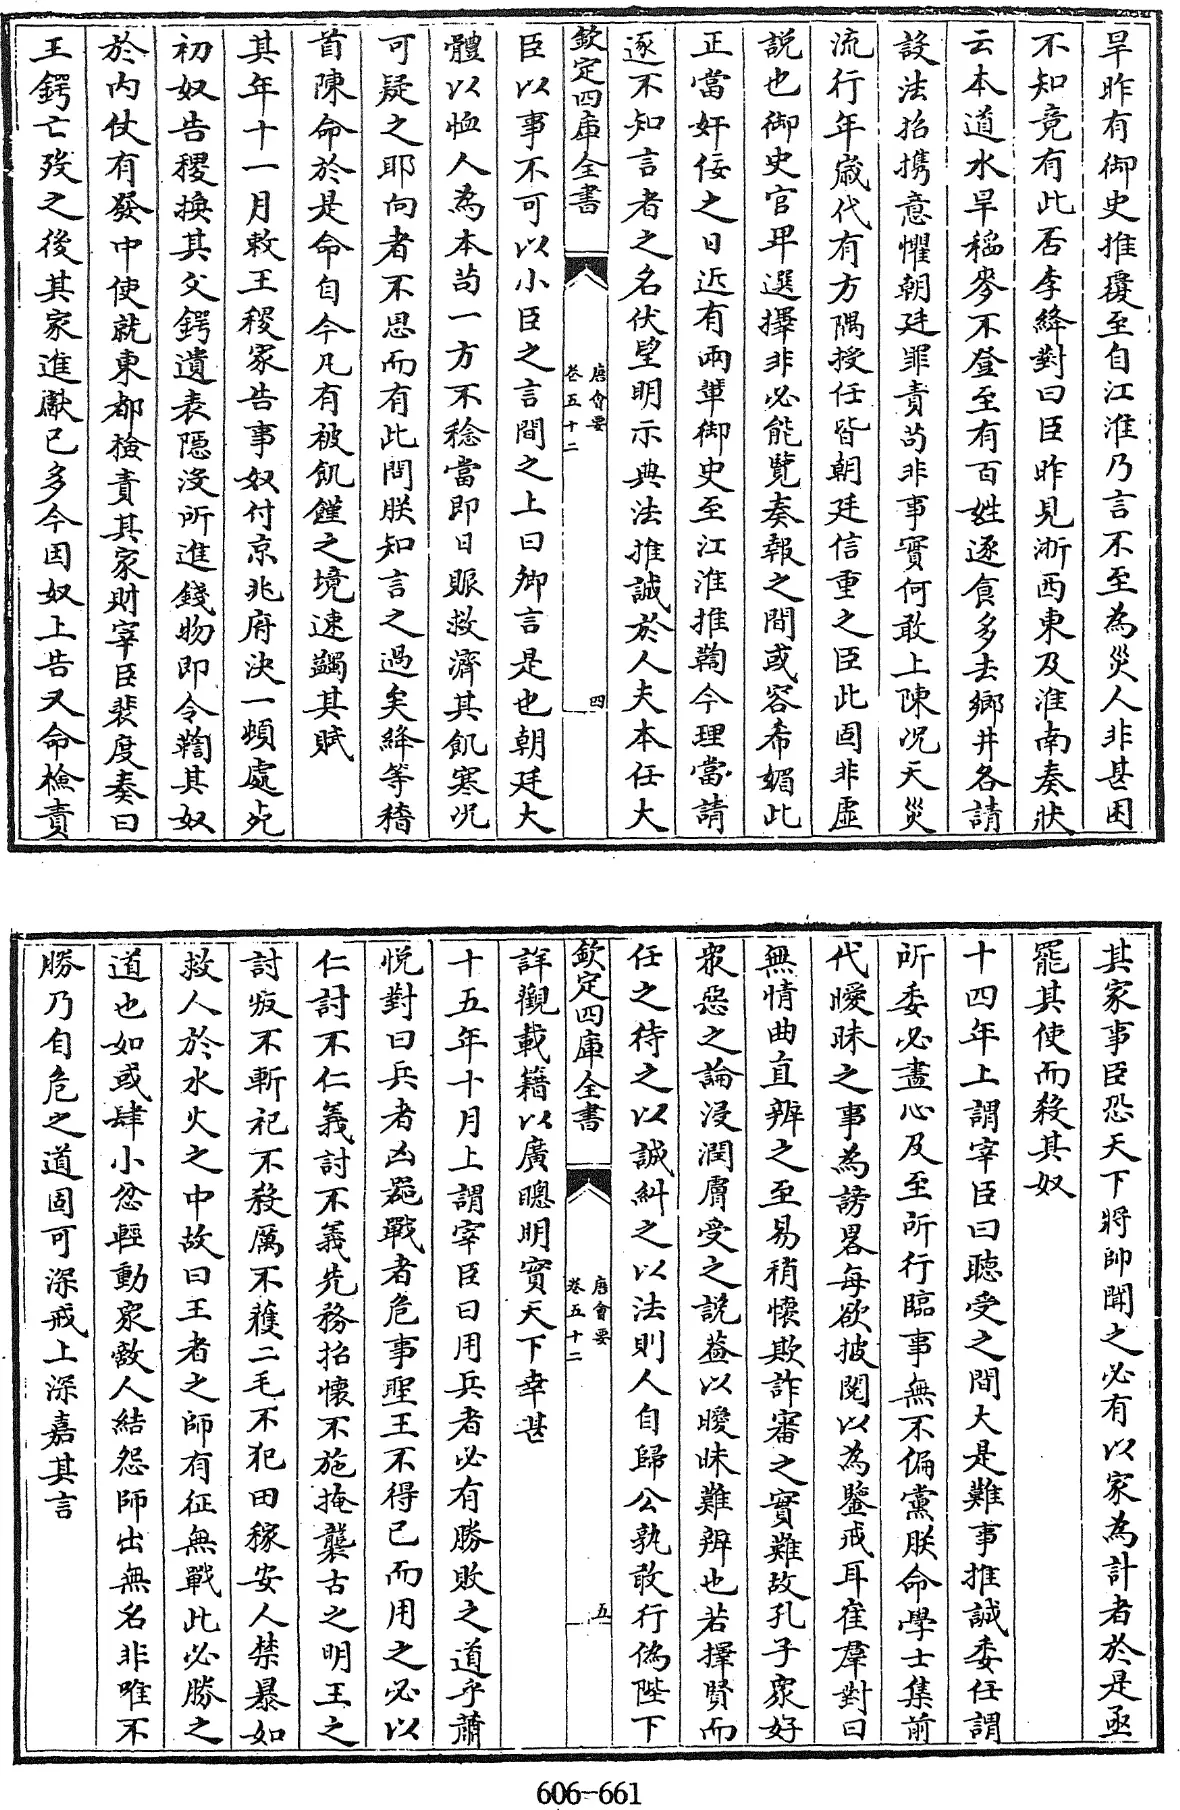 旱昨有御史推覆至自江淮乃言不至為災人非甚困
不知竟有此否李絳對曰臣昨見浙西東及淮南奏狀
云本道水旱稻麥不登至有百姓逐食多去鄉井各請
設法招攜意懼朝廷罪責茍非事實何敢上陳况天災
流行年歲代有方隅授任皆朝廷信重之臣此固非虛
説也御史官卑選擇非必能覽奏報之間或容希媚此
正當奸佞之日近有兩輩御史至江淮推鞫今理當請
逐不知言者之名伏望明示典法推誠於人夫本任大
欽定四庫全書
唐會要
卷五十二
四
臣以事不可以小臣之言間之上曰卿言是也朝廷大
體以恤人為本茍一方不稔當即日賑救濟其飢寒况
可疑之耶向者不思而有此問朕知言之過矣絳等稽
首陳命於是命自今凡有被飢饉之境速蠲其賦
其年十一月敕王稷家告事奴付京兆府決一頓處死
初奴告稷換其父鍔遺表隱沒所進錢物即令鞫其奴
於内仗有發中使就東都檢責其家財宰臣裴度奏曰
王鍔亡歿之後其家進獻已多今因奴上告又命檢責
其家事臣恐天下將帥聞之必有以家為計者於是亟
罷其使而殺其奴
十四年上謂宰臣曰聽受之間大是難事推誠委任謂
所委必盡心及至所行臨事無不偏黨朕命學士集前
代曖昧之事為謗畧每欲披閲以為鑒戒耳崔羣對曰
無情曲直辨之至易稍懷欺詐審之實難故孔子衆好
衆惡之論浸潤膚受之説葢以曖昧難辨也若擇賢而
任之待之以誠糾之以法則人自歸公孰敢行偽陛下
欽定四庫全書
唐會要
卷五十二
五
詳觀載籍以廣聰明實天下幸甚
十五年十月上謂宰臣曰用兵者必有勝敗之道乎蕭
悦對曰兵者凶器戰者危事聖王不得已而用之必以
仁討不仁義討不義先務招懷不施掩襲古之明王之
討叛不斬祀不殺厲不獲二毛不犯田稼安人禁暴如
救人於水火之中故曰王者之師有征無戰此必勝之
道也如或肆小忿輕動衆敵人結怨師出無名非唯不
勝乃自危之道固可深戒上深嘉其言
606-661